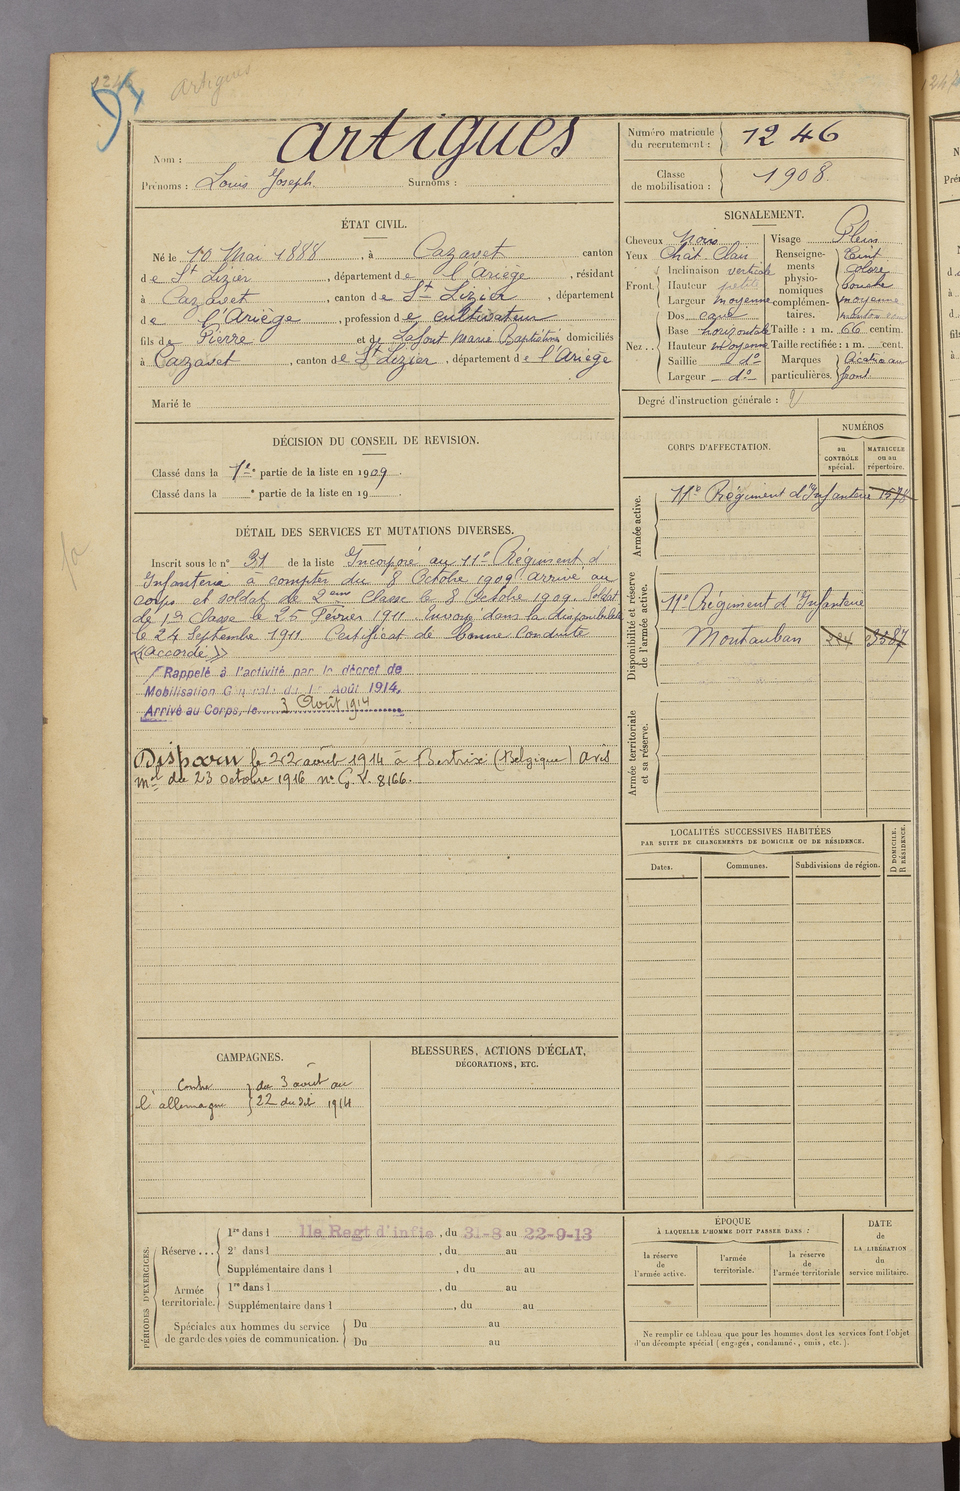 1246
Artigues
Nom : Artigues
Prénoms : Louis Joseph Surnoms :
Numéro matricule du recrutement : 1246
Classe de mobilisation : 1908
ÉTAT CIVIL.
Né le 10 Mai 1888, à Cazavet canton
de St Lizier, département de l'Ariège, résidant
à Cazavet, canton de St Lizier, département
de l'Ariège, profession de cultivateur
fils de Pierre et de Lafont Marie Baptistine domiciliés
à Cazavet, canton de St Lizier, département de l'Ariège
Marié le
SIGNALEMENT.
Cheveux Noirs
Yeux Chât. Clair
Front. Inclinaison verticale
Hauteur petite
Largeur moyenne
Nez.. Dos cave
Base horizontale
Hauteur moyenne
Saillie do
Largeur do
Visage Plein
Renseignements physionomiques complémentaires. Teint coloré bouche moyenne
Taille : 1 m. 66 centim.
Taille rectifiée : 1 m. cent.
Marques particulières. front.
Degré d'instruction générale :
DÉCISION DU CONSEIL DE REVISION.
Classé dans la 1re partie de la liste en 1909.
Classé dans la e partie de la liste en 19
DÉTAIL DES SERVICES ET MUTATIONS DIVERSES.
Inscrit sous le n° 31 de la liste Incorporé au 11e Régiment d'
Infanterie à compter du 8 Octobre 1909 arrivé au
corps et soldat de 2eme Classe le 8 Octobre 1909. Soldat
de 1re Classe le 25 Février 1911. Envoyé dans la disponibilité
le 24 Septembre 1911. Certificat de bonne Conduite
« accordé »
Rappelé à l'activité par le décret de
Mobilisation Générale du 1er Août 1914.
Arrivé au Corps, le 3 Août 1914
Disparu le 22 août 1914 à Bertrix (Belgique) avis
mel du 23 octobre 1916 no G.V. 8166.
CORPS D'AFFECTATION.
NUMÉROS
au CONTRÔLE spécial.
MATRICULE ou au répertoire.
Armée active.
11e Régiment d'Infanterie 1578
Disponibilité et réserve de l'armée active.
11e Régiment d'Infanterie
Montauban
Armée territoriale et sa réserve.
LOCALITÉS SUCCESSIVES HABITÉES
PAR SUITE DE CHANGEMENTS DE DOMICILE OU DE RÉSIDENCE.
Dates. Communes. Subdivisions de région. D DOMICILE. R RÉSIDENCE.
CAMPAGNES.
Contre l'allemagne du 3 août au 22 du dit 1914
BLESSURES, ACTIONS D'ÉCLAT,
DÉCORATIONS, ETC.
PÉRIODES D'EXERCICES.
Réserve... 1re dans l 11e Regt d'infie, du 31-8 au 22-9-13
2e dans l , du au
Supplémentaire dans l , du au
Armée territoriale. 1re dans l , du au
Supplémentaire dans l , du au
Spéciales aux hommes du service de garde des voies de communication. Du au
Du au
ÉPOQUE
À LAQUELLE L'HOMME DOIT PASSER DANS :
la réserve de l'armée active.
l'armée territoriale.
la réserve de l'armée territoriale
DATE
de
LA LIBÉRATION
du
service militaire.
Ne remplir ce tableau que pour les hommes dont les services font l'objet
d'un décompte spécial (engagés, condamnés, omis, etc.).